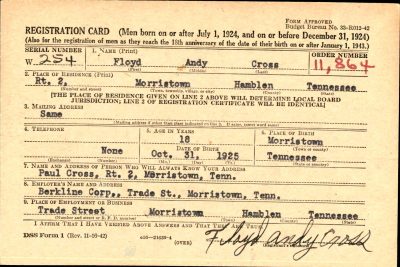 FORM APPROVED
Budget Bureau No. 33-R012-42
REGISTRATION CARD (Men born on or after July 1, 1924, and on or before December 31, 1924)
(Also for the registration of men as they reach the 18th anniversary of the date of their birth on or after January 1, 1943.)
SERIAL NUMBER 1. NAME (Print) ORDER NUMBER
W. 254 Floyd Andy Cross 11,864
(First) (Middle) (Last)
2. PLACE OF RESIDENCE (Print)
Rt. 2, Morristown Hamblen Tennessee
(County) (State)
[THE PLACE OF RESIDENCE GIVEN ON LINE 2 ABOVE WILL DETERMINE LOCAL BOARD
JURISDICTION; LINE 2 OF REGISTRATION CERTIFICATE WILL BE IDENTICAL]
3. MAILING ADDRESS
Same
4. TELEPHONE 5. AGE IN YEARS 6. PLACE OF BIRTH
18 Morristown
DATE OF BIRTH (Town or county)
None Oct. 31, 1925 Tennessee
(Exchange) (Number) (Mo.) (Day) (Yr.) (State or country)
7. NAME AND ADDRESS OF PERSON WHO WILL ALWAYS KNOW YOUR ADDRESS
Paul Cross, Rt. 2, Morristown, Tenn.
8. EMPLOYER'S NAME AND ADDRESS
Berkline Corp., Trade St., Morristown, Tenn.
9. PLACE OF EMPLOYMENT OR BUSINESS
Trade Street Morristown Hamblen Tennessee
(County) (State)
I AFFIRM THAT I HAVE VERIFIED ABOVE ANSWERS AND THAT THEY ARE TRUE.
DSS Form 1 (OVER) Floyd Andy Cross